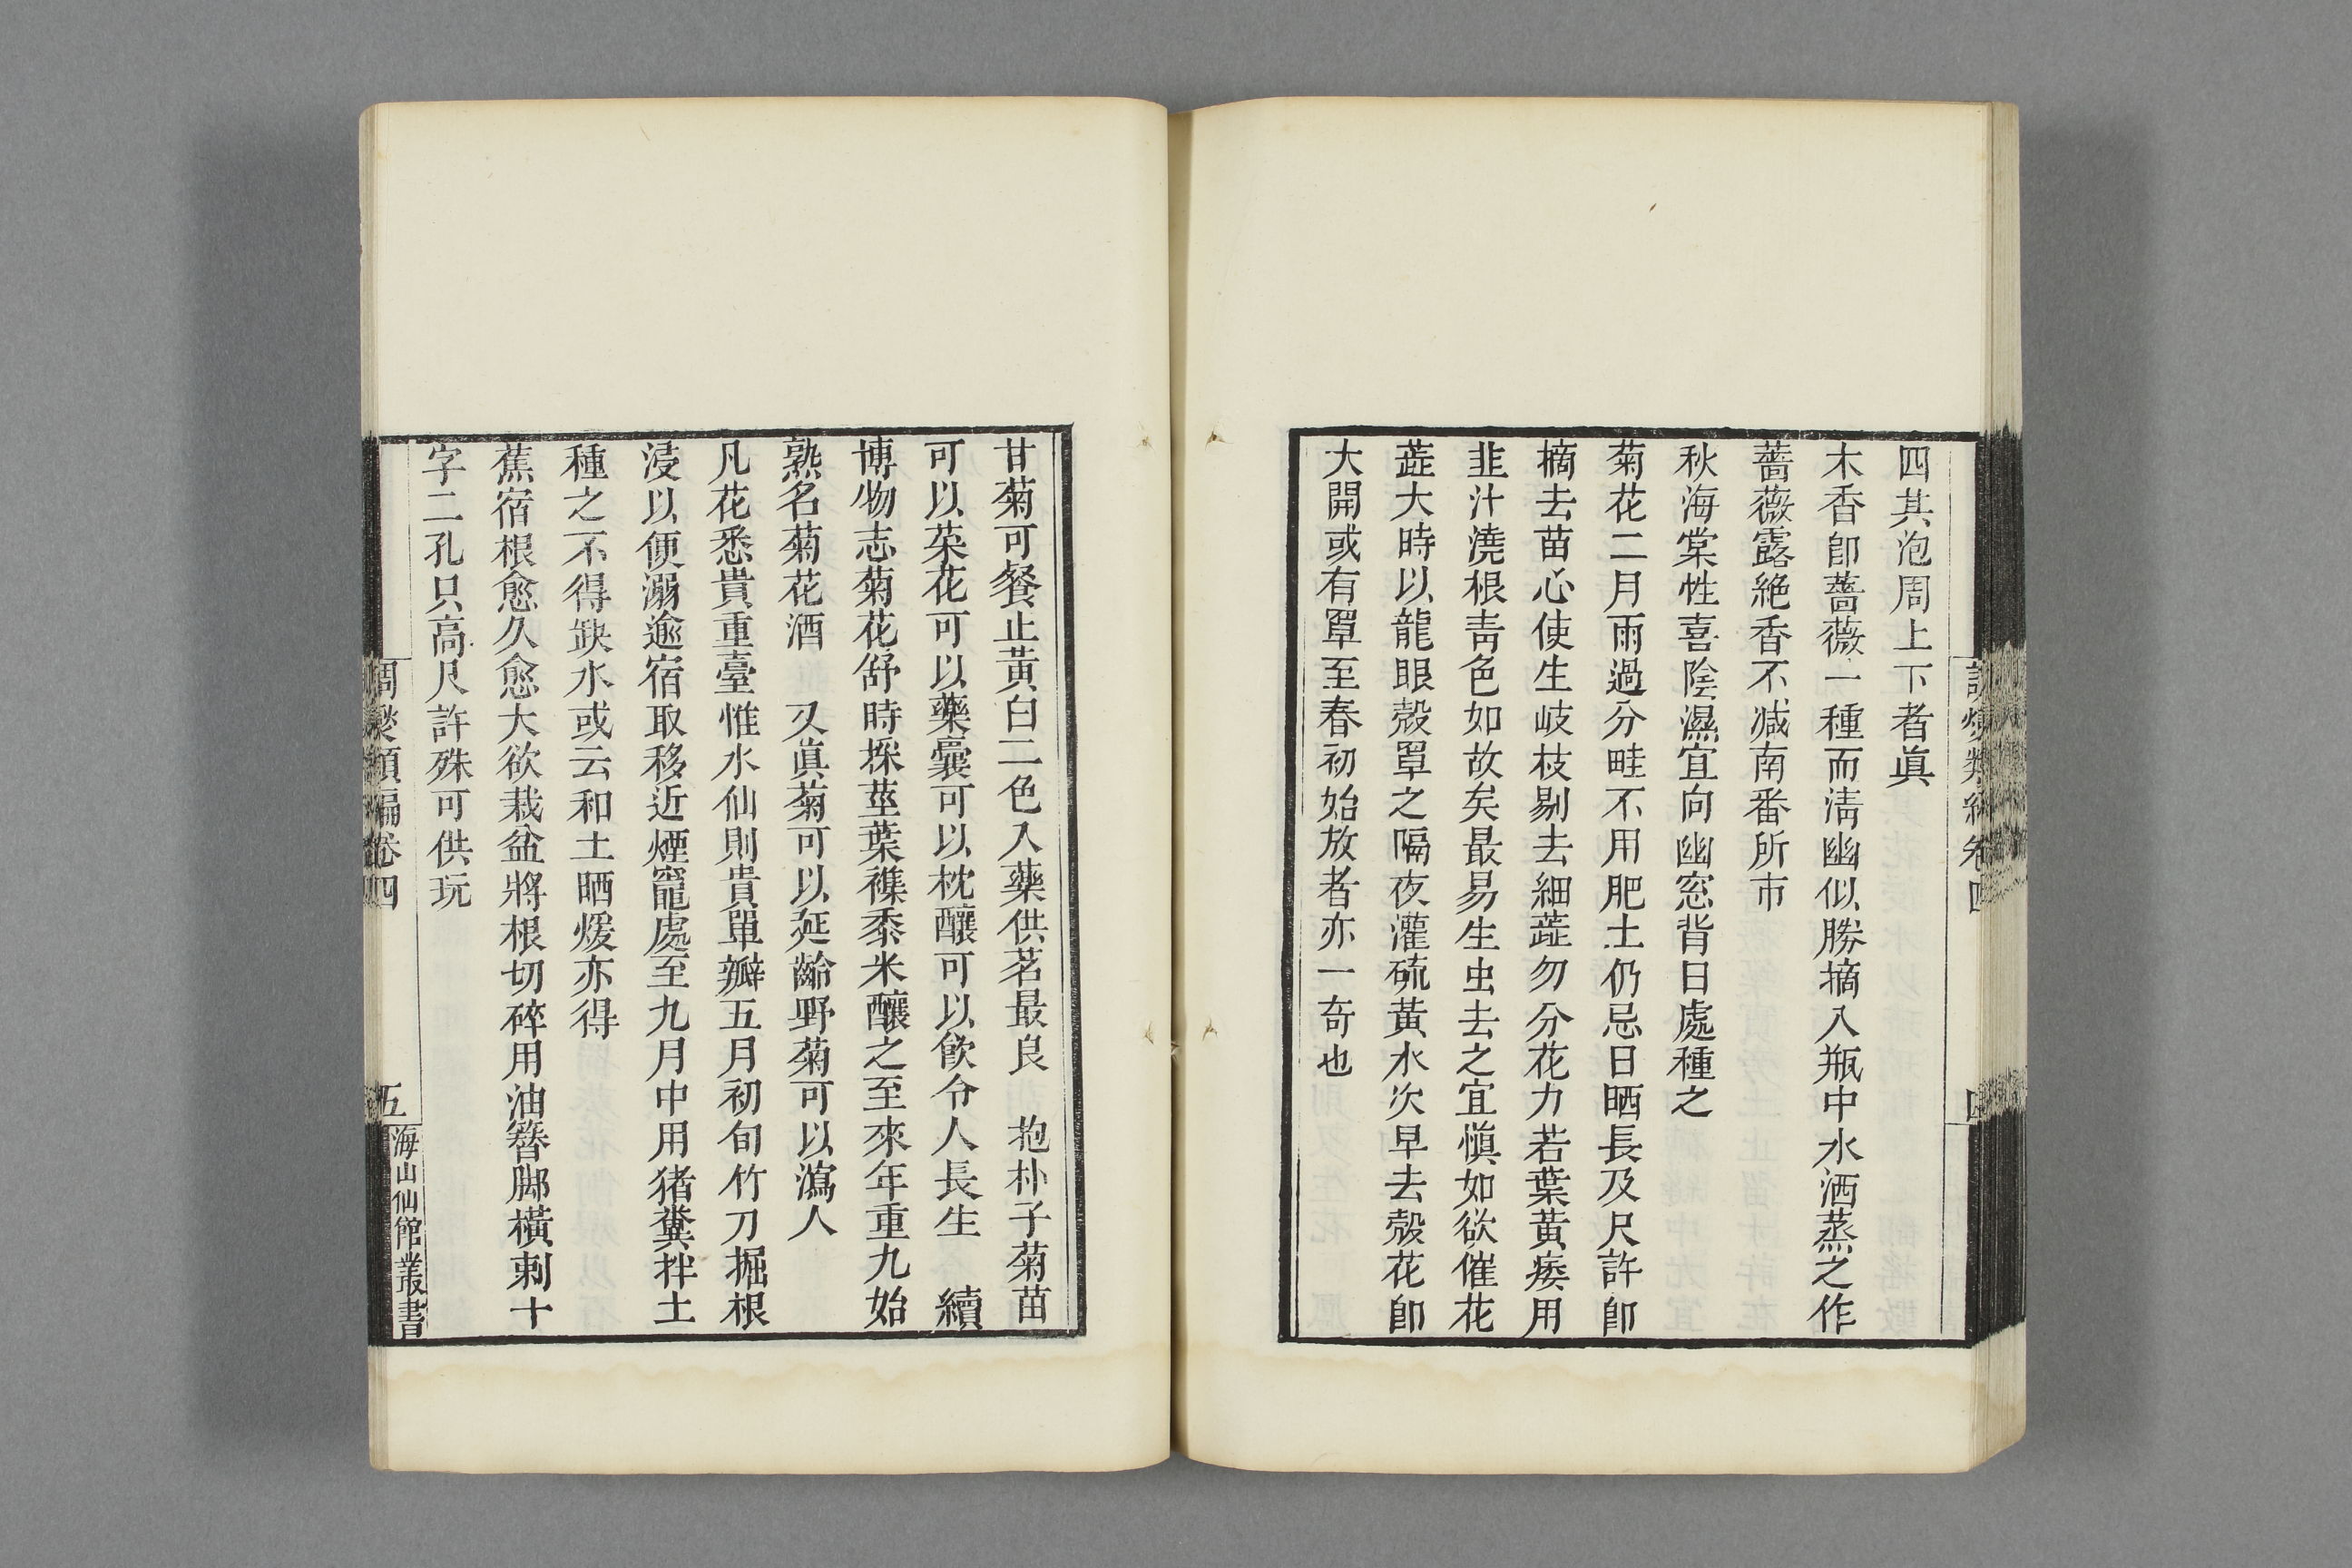 四其泡周上下者眞
木香卽薔薇一種而淸幽似勝摘入瓶中水洒蒸之作
薔薇露絶香不減南番所市
秋海棠性喜陰濕宜向幽窓背日處種之
菊花二月雨過分畦不用肥土仍忌日晒長及尺許卽
摘去苗心使生岐枝剔去細蕋勿分花力若葉黃痿用
韭汁澆根靑色如故矣最易生虫去之宜愼如欲催花
蕋大時以龍眼殼罩之隔夜灌硫黃水次早去殼花卽
大開或有罩至春初始放者亦一奇也
甘菊可餐止黃白二色入藥供茗最良　抱朴子菊苗
可以菜花可以藥囊可以枕釀可以飮令人長生　續
博物志菊花舒時採莖葉襍黍米釀之至來年重九始
熟名菊花酒　又眞菊可以延齡野菊可以瀉人
凡花悉貴重臺惟水仙則貴單瓣五月初旬竹刀掘根
浸以便溺逾宿取移近煙竈處至九月中用猪糞拌土
種之不得缺水或云和土晒煖亦得
蕉宿根愈久愈大欲栽盆將根切碎用油簪脚橫刺十
字二孔只高尺許殊可供玩
調燮類編卷四
五
海山仙館叢書